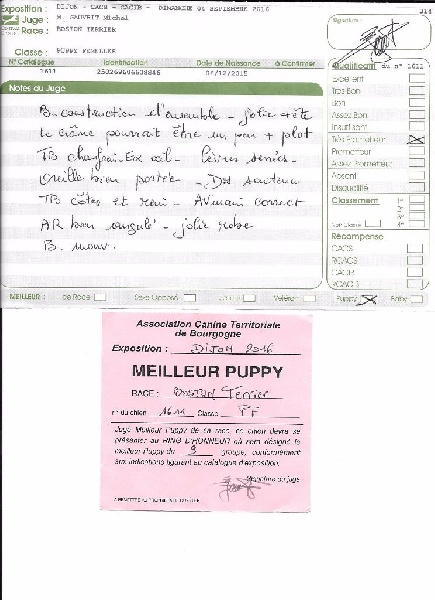 Exposition : DIJON - CACS - CACIB - DIMANCHE 04 SEPTEMBRE 2016 314
Juge : M. SAUVRIT Michel Signature :
Race : BOSTON TERRIER
Classe : PUPPY FEMELLES
N° Catalogue Identification Date de Naissance à Confirmer
1611 250269606608846 04/12/2015
Notes du Juge
B. construction d'ensemble - jolie tête
le crâne pourrait être un peu + plat
TB chanfrein - Ex œil - lèvres serrées -
Oreille bien portée - Dos soutenu
TB côtes et rein - Avant correct
AR bien angulé - jolie robe
B. mouv.
Qualificatif du n° 1611
Excellent
Très Bon
Bon
Assez Bon
Insuffisant
Très Prometteur
Prometteur
Assez Prometteur
Absent
Disqualifié
Classement
Non Classé
Récompense
CACS
RCACS
CACIB
RCACIB
MEILLEUR : de Race Sexe Opposé Jeune Vétéran Puppy Baby
Association Canine Territoriale
de Bourgogne
Exposition : DIJON 2016
MEILLEUR PUPPY
RACE : BOSTON Terrier
n° du chien 1611 Classe PF
Jugé Meilleur Puppy de sa race, ce chien devra se
présenter au RING D'HONNEUR où sera désigné le
meilleur Puppy du 9 groupe, conformément
aux indications figurant au catalogue d'exposition.
Signature du juge